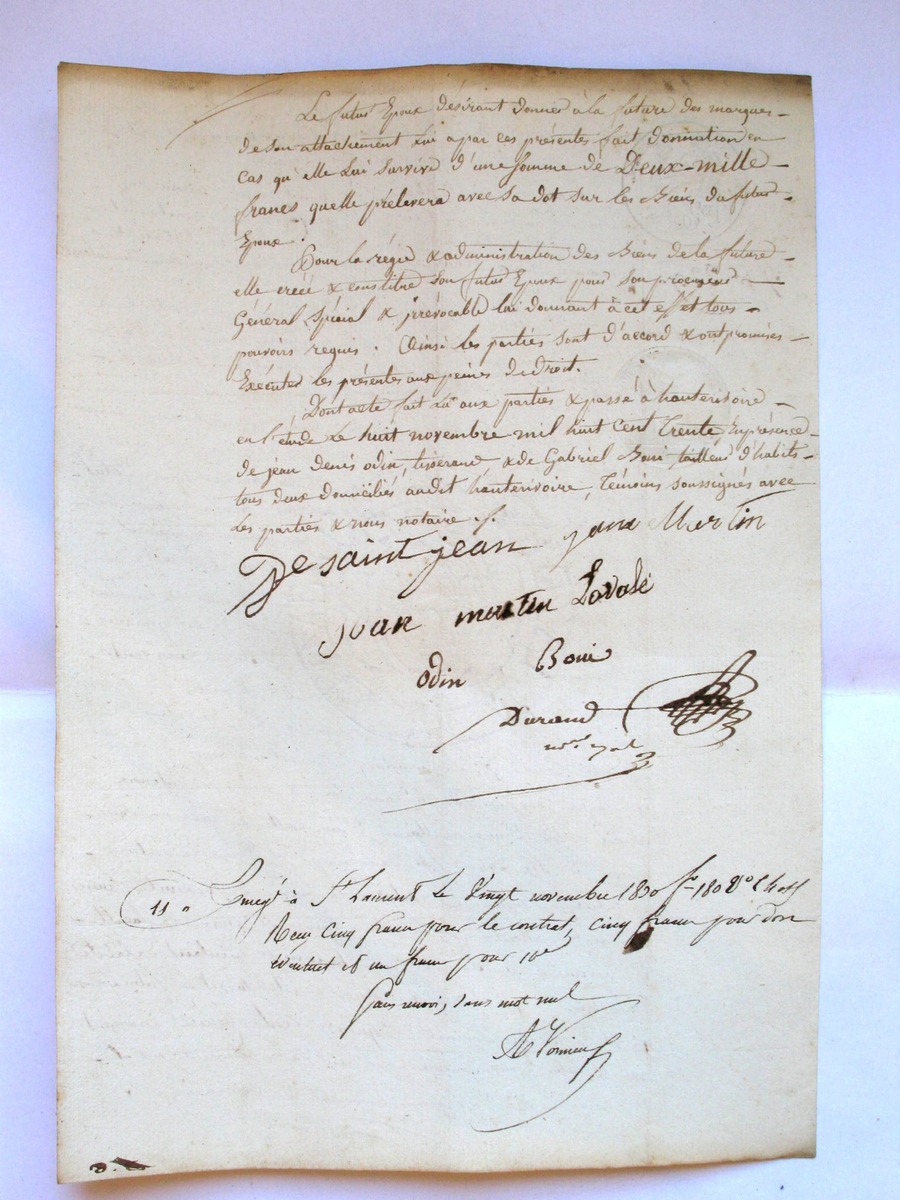 Le futur Epoux désirant donner à la future des marques
de son attachement lui a par ces présentes fait donnation en
cas qu'elle lui survive d'une somme de Deux-mille
francs quelle prélevera avec sa dot sur les Biens du futur
Epoux.
Pour la régie & administration des Biens de la future
elle créé & constitue son futur Epoux pour son procureur
Général Spécial & irrévocable lui donnant à cet effet tous
pouvoirs requis. Ainsi les parties sont d'accord & ont promises
Exécuter les présentes aux peines de droit.
Dont acte fait Lu aux parties & passé à hauterivoire
en l'étude Le huit novembre mil huit cent Trente En présence
de jean denis odin, tisserand, & de Gabriel Boni tailleur d'habits
tous deux domiciliés audit hauterivoire, Témoins soussignés avec
Les parties & nous notaire ./.
De saint jean jane Mertin
Jean martin Lavale
Odin Boni
Durand
11
Enregé à St Laurent Le Vingt novembre 1830 fo 180 Vo
Reçu Cinq francs pour le contrat, cinq francs pour don
éventuel et un franc pour 10e
sans renvoi, sans mot nul